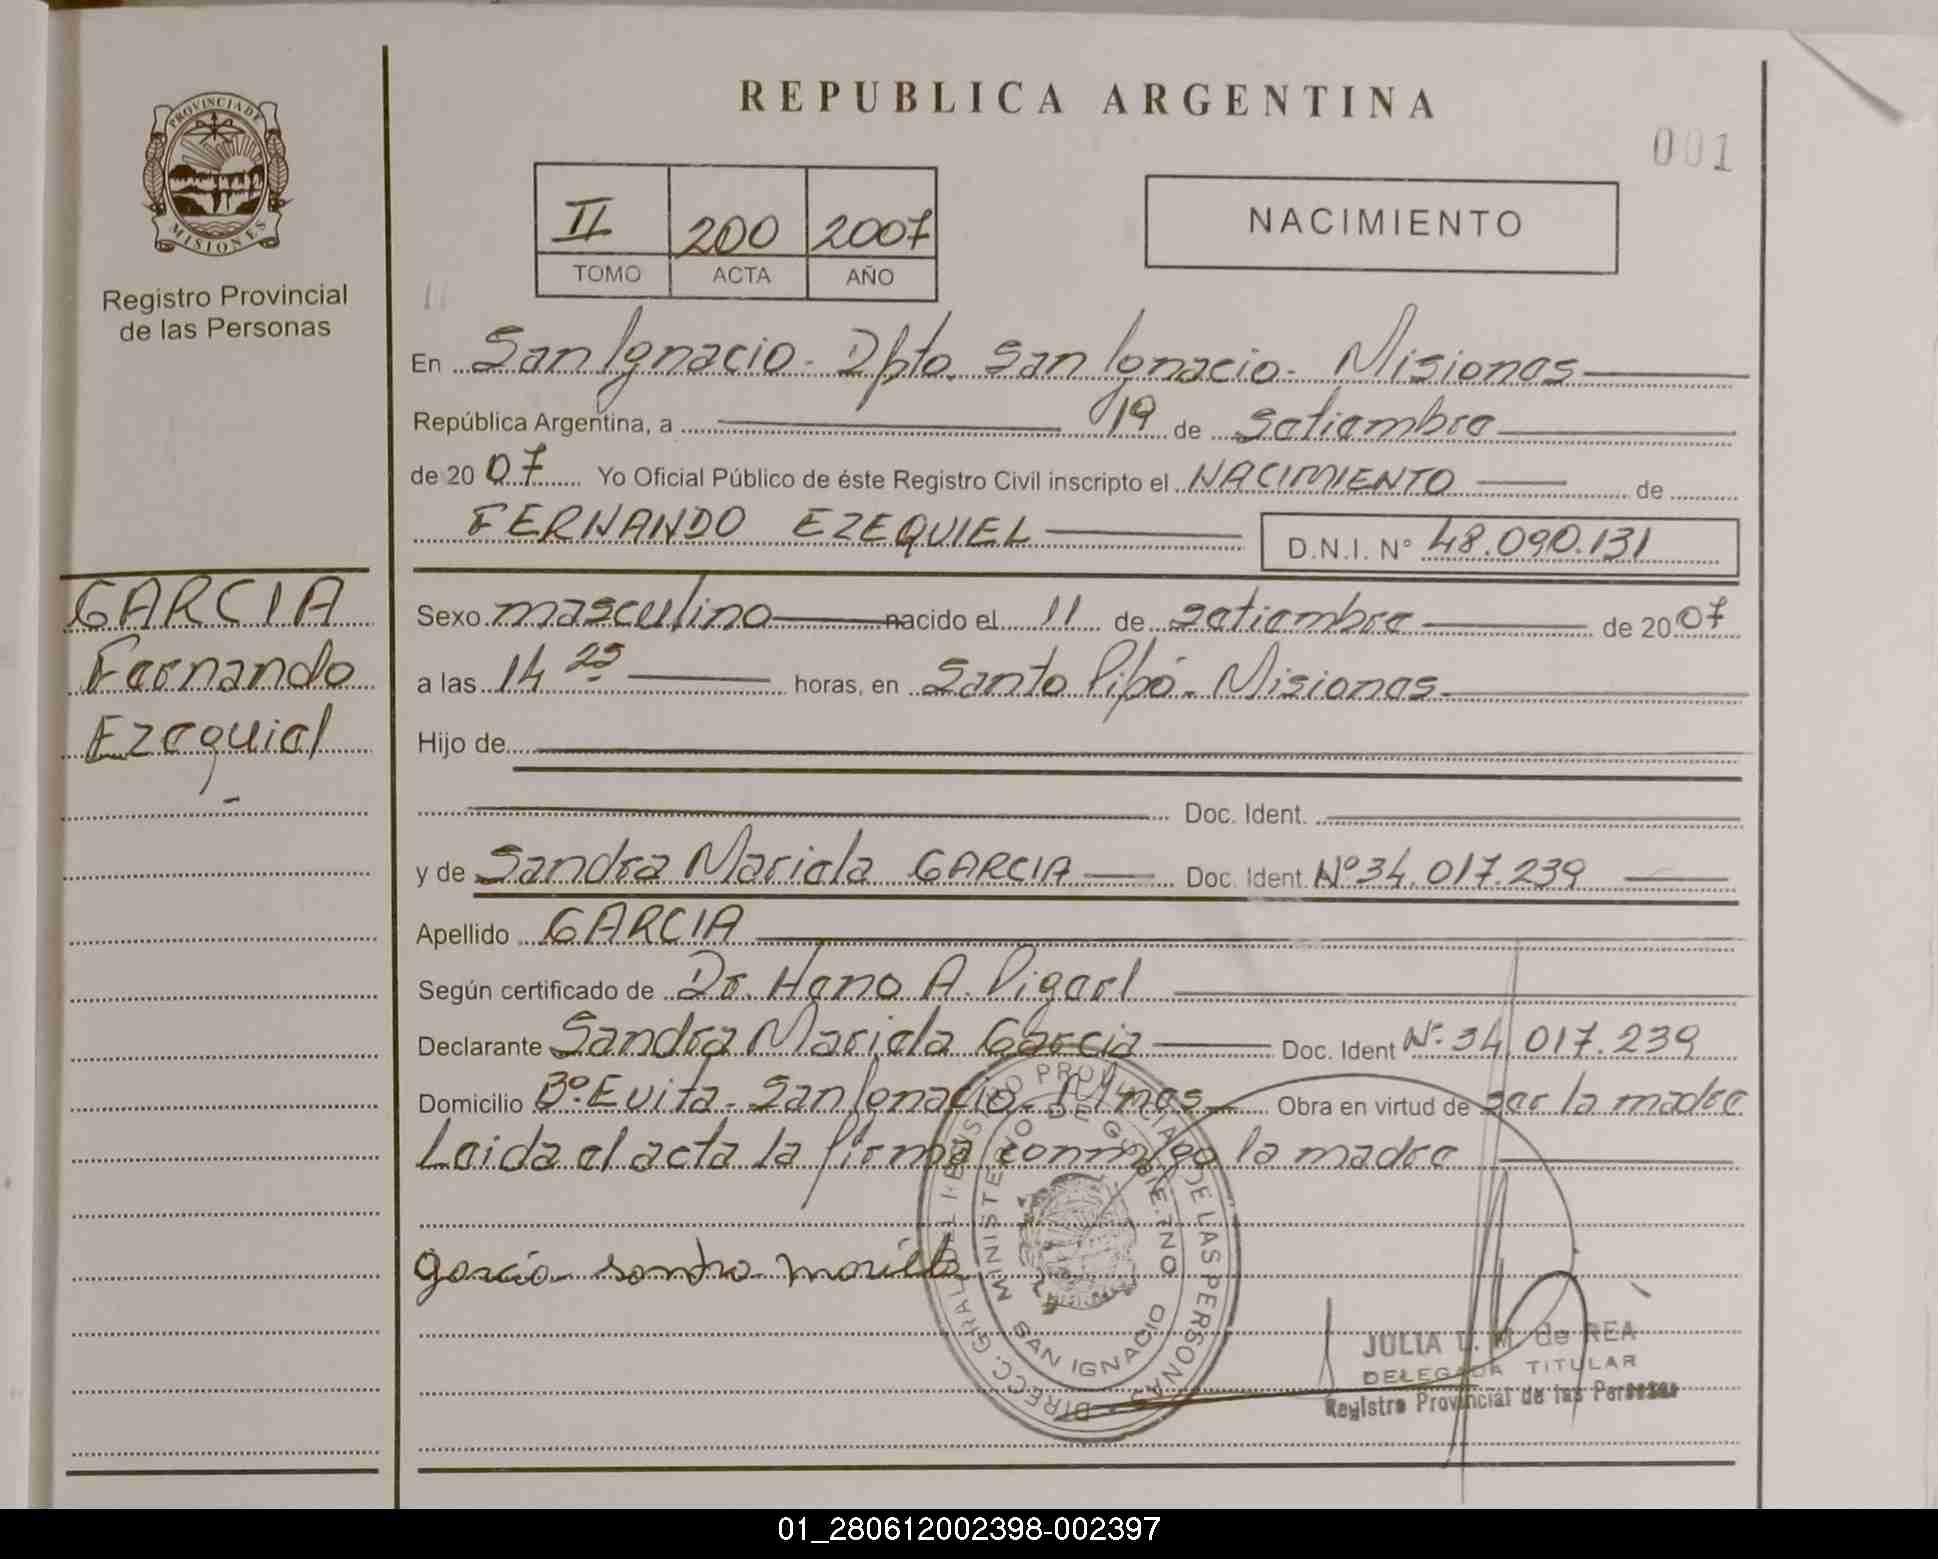 REPUBLICA ARGENTINA
001
PROVINCIA DE
MISIONES
Registro Provincial
de las Personas
II 200 2007
TOMO ACTA AÑO
NACIMIENTO
En San Ignacio - Dpto. San Ignacio - Misiones
República Argentina, a 19 de Setiembre
de 2007 Yo Oficial Público de éste Registro Civil inscripto el NACIMIENTO de
FERNANDO EZEQUIEL D.N.I. N° 48.090.131
GARCIA
Fernando
Ezequiel
Sexo masculino nacido el 11 de setiembre de 2007
a las 14 25 horas, en Santo Pipó - Misiones
Hijo de
Doc. Ident.
y de Sandra Mariela GARCIA Doc. Ident. Nº 34.017.239
Apellido GARCIA
Según certificado de Dr. A.
Declarante Sandra Mariela Garcia Doc. Ident Nº 34.017.239
Domicilio Bº. Evita - San Ignacio - Mnes Obra en virtud de ser la madre
Leida el acta la firma conmigo la madre
garcia sandra mariela
DIRECC. GRAL. DEL REGISTRO PROVINCIAL DE LAS PERSONAS
MINISTERIO DE GOBIERNO
SAN IGNACIO
JULIA L. M. de REA
DELEGADA TITULAR
Registro Provincial de las Personas
01_280612002398-002397